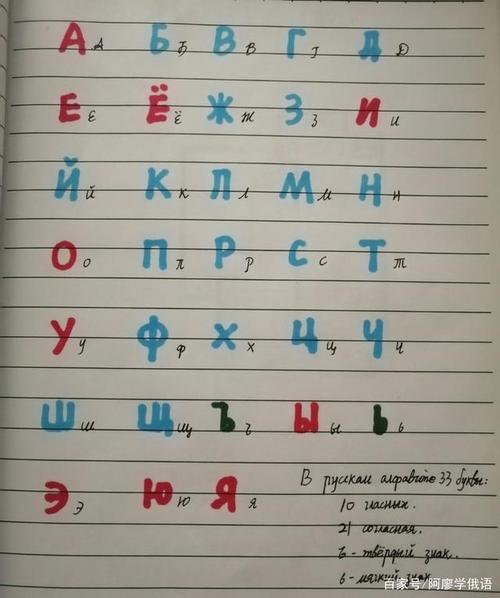 А А Б Б В В Г г Д D
Е Е Ё Ё Ж ж З з И и
Й й К к Л л М м Н н
О о П п Р р С с Т т
У у Ф ф Х х Ц ц Ч ч
Ш ш Щ щ Ъ ъ Ы ы Ь ь
Э э Ю ю Я я
В русскам алфавите 33 буквы:
10 гласных.
21 согласная.
ъ - твёрдый знак.
ь - мягкий знак
百家号/阿廖学俄语